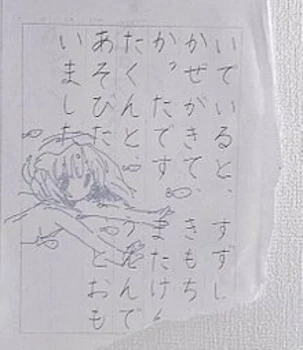 いていると、すずし
かぜがきて、きもち
かったです。またけん
たくんと、んで
あそびたとおも
いました